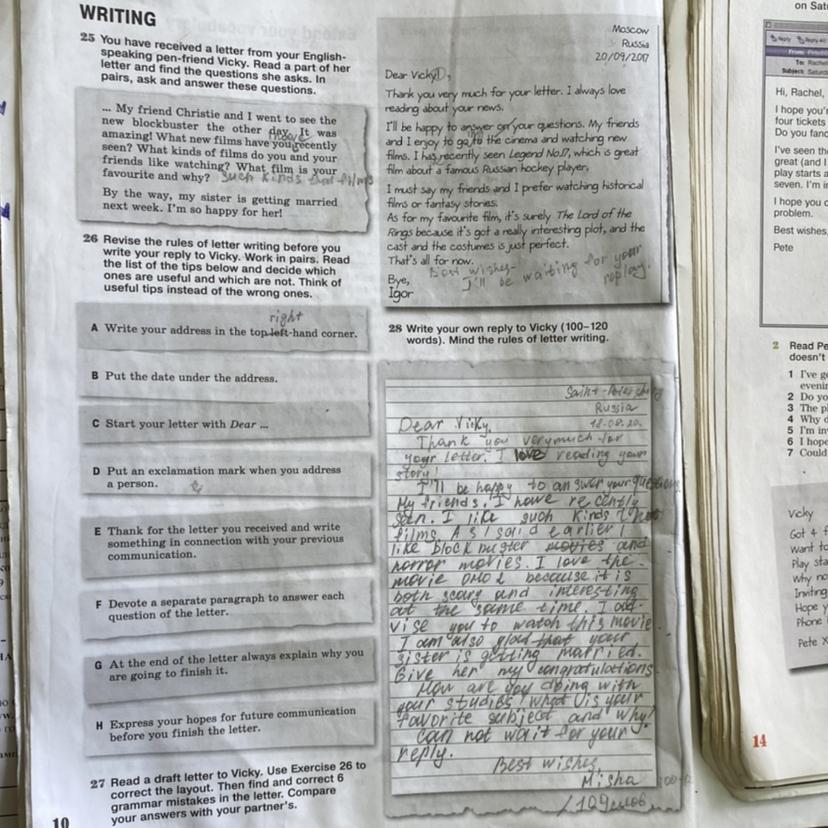 WRITING
25 You have received a letter from your English-
speaking pen-friend Vicky. Read a part of her
letter and find the questions she asks. In
pairs, ask and answer these questions.
... My friend Christie and I went to see the
new blockbuster the other day. It was
amazing! What new films have you recently
seen? What kinds of films do you and your
friends like watching? What film is your
favourite and why? such kinds that films
By the way, my sister is getting married
next week. I'm so happy for her!
26 Revise the rules of letter writing before you
write your reply to Vicky. Work in pairs. Read
the list of the tips below and decide which
ones are useful and which are not. Think of
useful tips instead of the wrong ones.
right
A Write your address in the top left-hand corner.
B Put the date under the address.
C Start your letter with Dear ...
D Put an exclamation mark when you address
a person.
E Thank for the letter you received and write
something in connection with your previous
communication.
F Devote a separate paragraph to answer each
question of the letter.
G At the end of the letter always explain why you
are going to finish it.
H Express your hopes for future communication
before you finish the letter.
27 Read a draft letter to Vicky. Use Exercise 26 to
correct the layout. Then find and correct 6
grammar mistakes in the letter. Compare
your answers with your partner's.
10
Moscow
Russia
20/09/2017
Dear Vicky!,
Thank you very much for your letter. I always love
reading about your news.
I'll be happy to answer on your questions. My friends
and I enjoy to go to the cinema and watching new
films. I has recently seen Legend No.17, which is great
film about a famous Russian hockey player.
I must say my friends and I prefer watching historical
films or fantasy stories.
As for my favourite film, it's surely The Lord of the
Rings because it's got a really interesting plot, and the
cast and the costumes is just perfect.
That's all for now.
Best wishes
I'll be waiting for your
replay.
Bye,
Igor
28 Write your own reply to Vicky (100–120
words). Mind the rules of letter writing.
Russia
18.09.20.
Dear Vicky,
Thank you very much for
your letter. I love reading your
story!
I'll be happy to answer your
My friends. I have recently
seen. I like such kinds
films. As I said earlier I
like block buster movies and
horror movies. I love the
movie because it is
both scary and interesting
at the same time. I ad-
vise you to watch this movie.
I am also glad that your
sister is getting married.
Give her my congratulations.
How are you doing with
your studies? What is your
favorite subject and why?
Can not wait for your
reply.
Best wishes,
Misha
on Sat
Hi, Rachel,
I hope you'r
four tickets
Do you fanc
I've seen th
great (and I
play starts a
seven. I'm ir
I hope you c
problem.
Best wishes
Pete
2 Read Pe
doesn't
1 I've g
evenin
2 Do yo
3 The pl
4 Why d
5 I'm in
6 I hope
7 Could
Vicky
Got 4 f
Want to
Play sta
Why no
Inviting
Hope y
Phone
Pete X
14